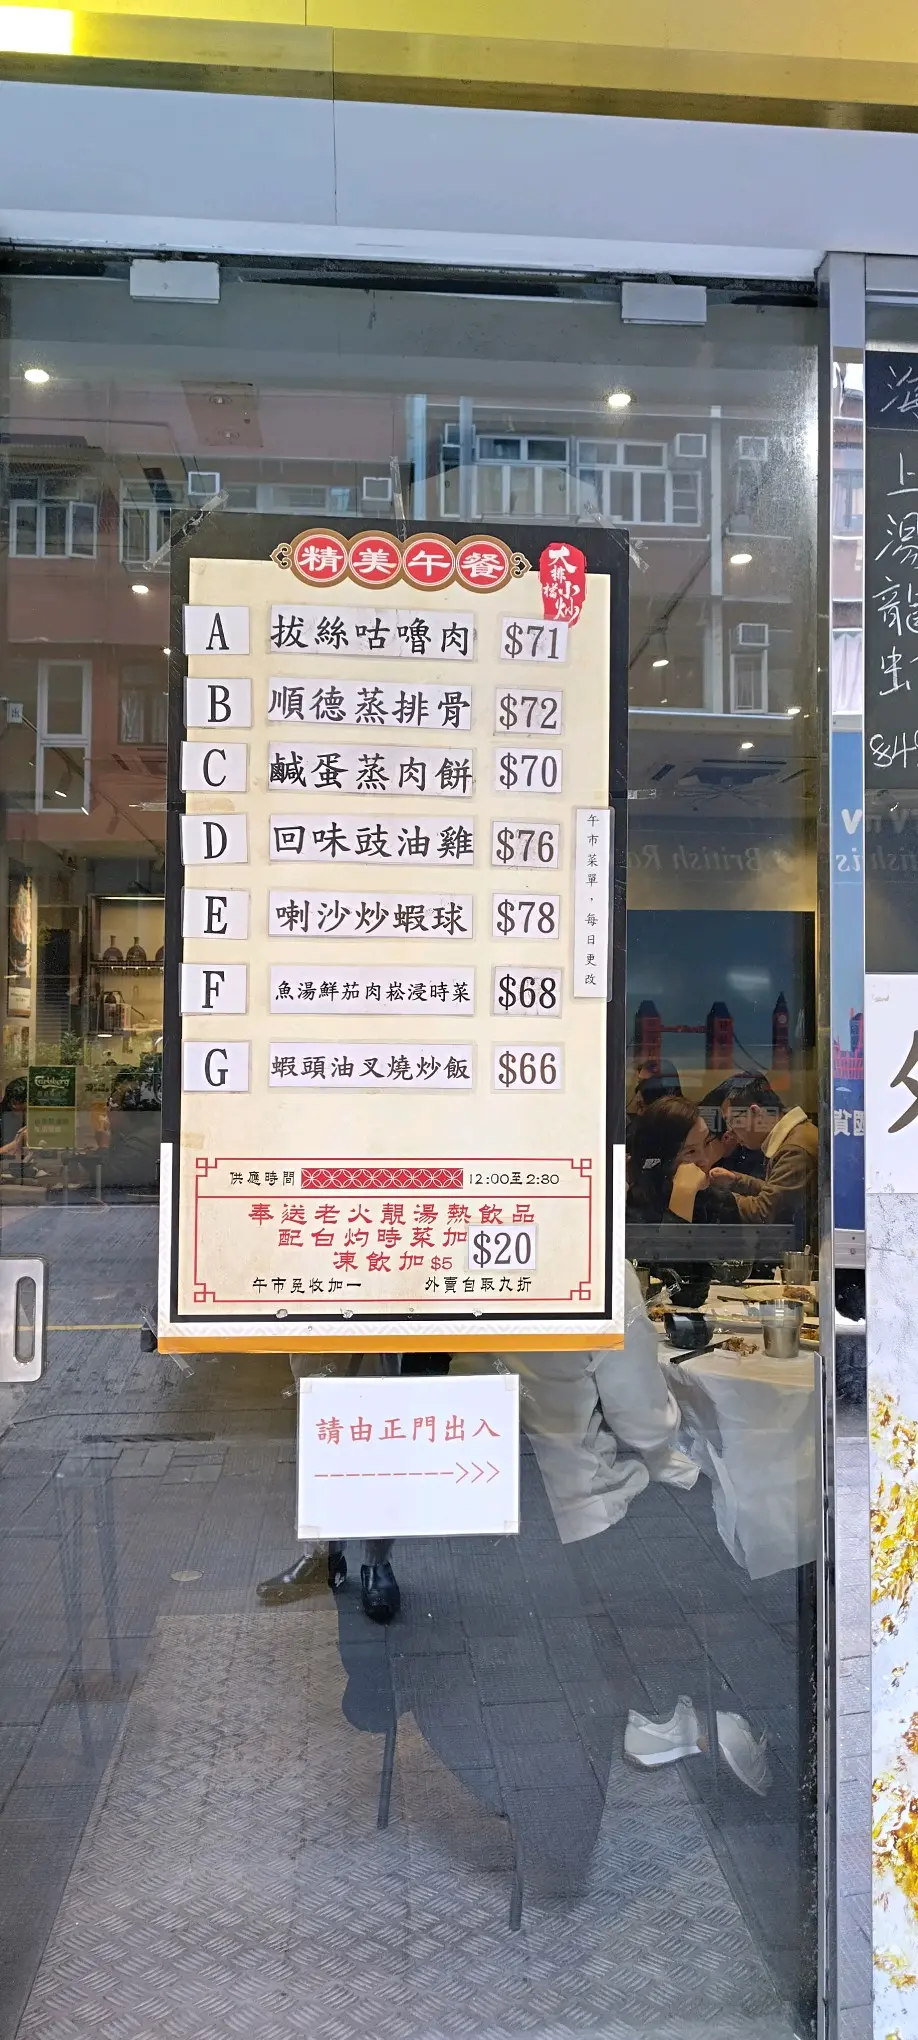 精美午餐
大排檔小炒
A 拔絲咕嚕肉 $71
B 順德蒸排骨 $72
C 鹹蛋蒸肉餅 $70
D 回味豉油雞 $76
E 喇沙炒蝦球 $78
F 魚湯鮮茄肉崧浸時菜 $68
G 蝦頭油叉燒炒飯 $66
午市菜單，每日更改
供應時間 12:00至2:30
奉送老火靚湯熱飲品
配白灼時菜加 $20
凍飲加 $5
午市免收加一 外賣自取九折
請由正門出入
--------->>>
上湯龍
Carlsberg
British